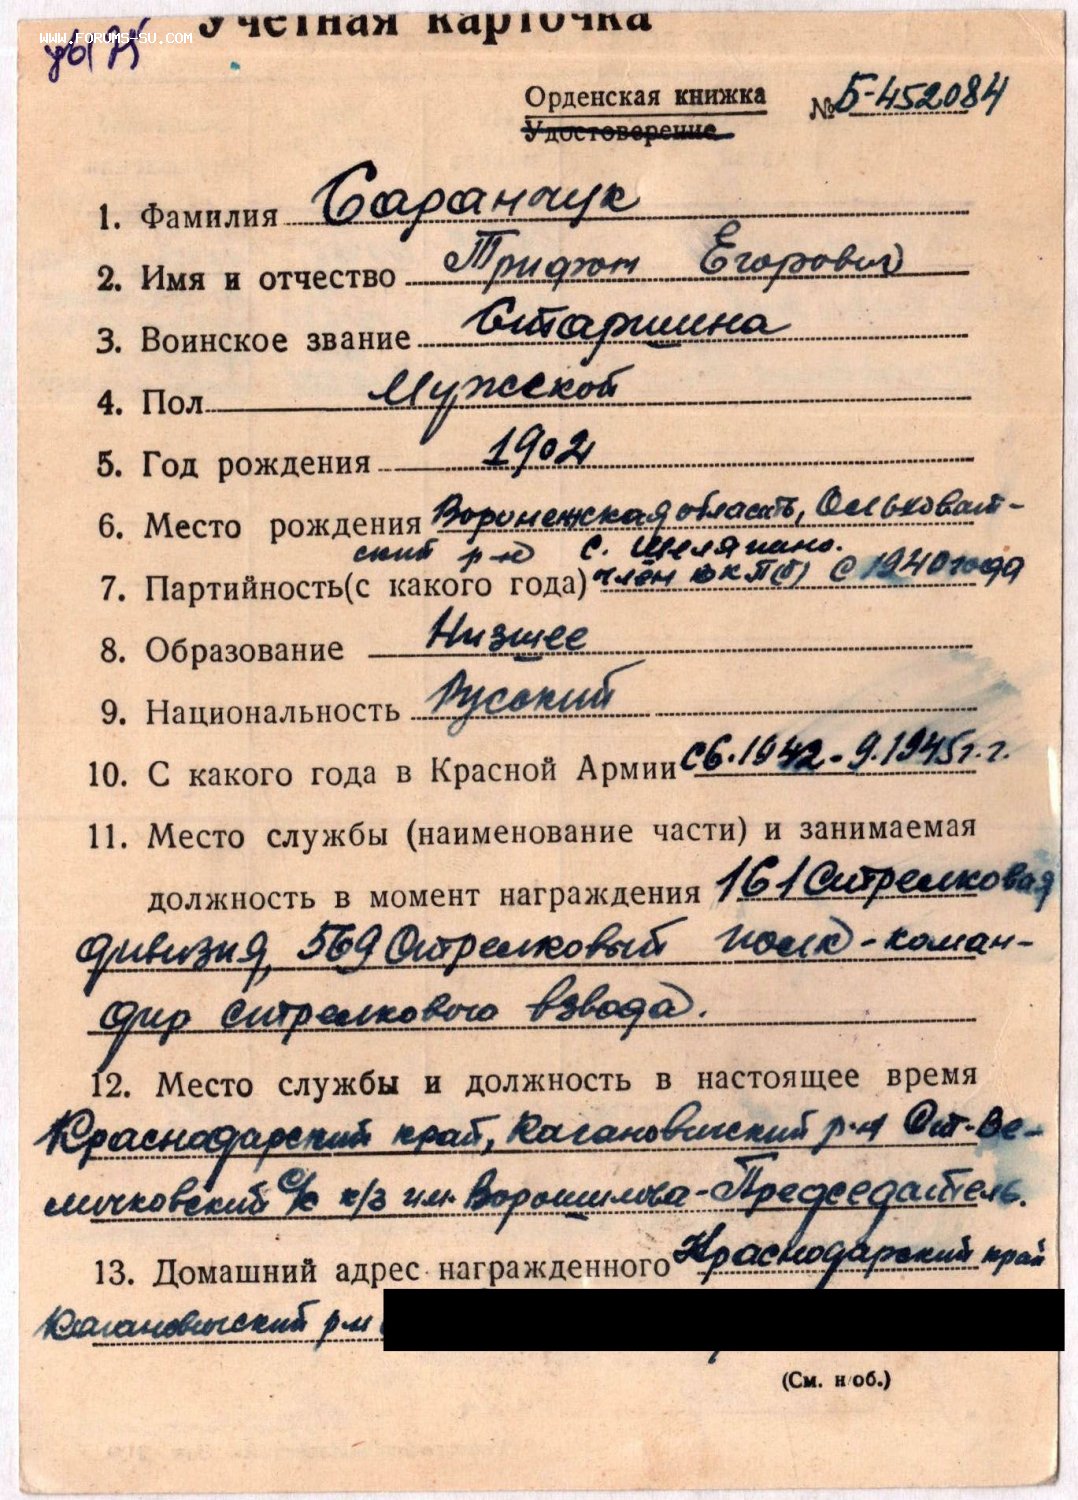 Учетная карточка
WWW.FORUMS-SU.COM
Орденская книжка № Б-452084
Удостоверение
1. Фамилия Саранчук
2. Имя и отчество Трифон Егорович
3. Воинское звание Старшина
4. Пол Мужской
5. Год рождения 1902
6. Место рождения Воронежская область, Ольховат-
ский р-н с. Шеляпино.
7. Партийность (с какого года) член ВКП(б) с 1940 года
8. Образование Низшее
9. Национальность Русский
10. С какого года в Красной Армии с 6.1942-9.1945 г.г.
11. Место службы (наименование части) и занимаемая
должность в момент награждения 161 Стрелковая
дивизия, 569 Стрелковый полк - коман-
дир стрелкового взвода.
12. Место службы и должность в настоящее время
Краснодарский край, Кагановичский р-н Ст-Ве-
личковский с/с к/з им. Ворошилова - Председатель.
13. Домашний адрес награжденного Краснодарский край
Кагановичский р-н
(См. н/об.)